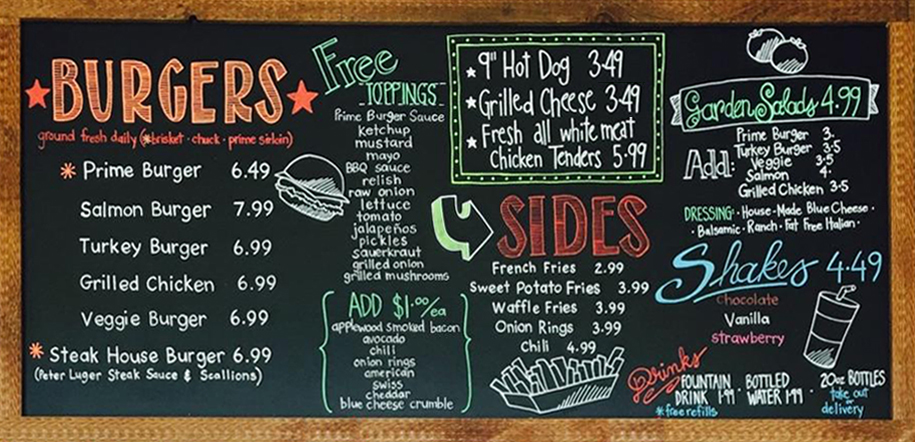 BURGERS
ground fresh daily (*brisket · chuck · prime sirloin)
* Prime Burger 6.49
Salmon Burger 7.99
Turkey Burger 6.99
Grilled Chicken 6.99
Veggie Burger 6.99
* Steak House Burger 6.99
(Peter Luger Steak Sauce & Scallions)
Free
TOPPINGS
Prime Burger Sauce
ketchup
mustard
mayo
BBQ sauce
relish
raw onion
lettuce
tomato
jalapeños
pickles
sauerkraut
grilled onion
grilled mushrooms
ADD $1.00/ea
applewood smoked bacon
avocado
chili
onion rings
american
swiss
cheddar
blue cheese crumble
9" Hot Dog 3.49
Grilled Cheese 3.49
Fresh all white meat
Chicken Tenders 5.99
SIDES
French Fries 2.99
Sweet Potato Fries 3.99
Waffle Fries 3.99
Onion Rings 3.99
Chili 4.99
Garden Salads 4.99
Add:
Prime Burger 3.
Turkey Burger 3.5
Veggie 3.5
Salmon 4.
Grilled Chicken 3.5
DRESSING: · House-Made Blue Cheese ·
· Balsamic · Ranch · Fat Free Italian ·
Shakes 4.49
chocolate
Vanilla
strawberry
Drinks
FOUNTAIN DRINK 1.99
*free refills
BOTTLED WATER 1.99
20oz BOTTLES
take out
or
delivery